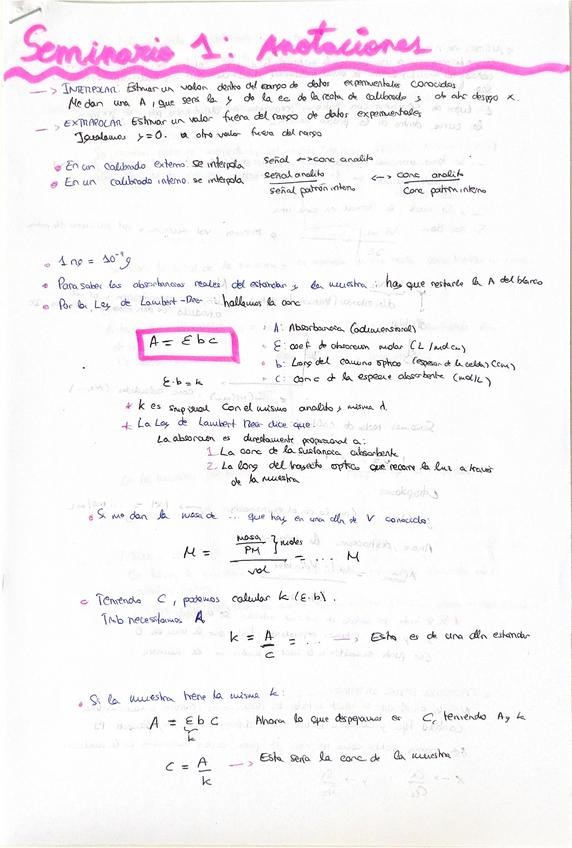 Seminario 1: Anotaciones
—> INTERPOLAR: Estimar un valor dentro del rango de datos experimentales conocidos.
Me dan una A, que sería la y de la ec de la recta de calibrado y de ahí despejo x.
—> EXTRAPOLAR: Estimar un valor fuera del rango de datos experimentales
Igualamos y=0. u otro valor fuera del rango
En un calibrado externo: se interpola señal <—> conc analito
En un calibrado interno: se interpola señal analito / señal patrón interno <—> conc analito / conc patrón interno
1 ng = 10⁻⁹ g
Para saber las absorbancias reales del estandar y la muestra: hay que restarle la A del blanco
Por la Ley de Lambert-Beer hallamos la conc
A = Ɛ b c
A: Absorbancia (adimensional)
Ɛ: coef de absorción molar (L/mol·cm)
b: Long del camino óptico (espesor de la celda) (cm)
C: conc d la especie absorbente (mol/L)
Ɛ·b = k
* k es siempre igual con el mismo analito y misma λ.
* La Ley de Lambert Beer dice que:
La absorción es directamente proporcional a:
1. La conc de la sustancia absorbente
2. La long del trayecto óptico que recorre la luz a través
de la muestra
Si me dan la masa de ... que hay en una dln de V conocido:
M = masa/PM } moles / vol = ... M
Teniendo C, podemos calcular k (Ɛ·b).
Tmb necesitamos A
k = A/C = ... —> Esta es de una dln estandar
Si la muestra tiene la misma k:
A = Ɛ b C Ahora lo que despejamos es C, teniendo A y k
k
C = A/k —> Esta sería la conc de la muestra